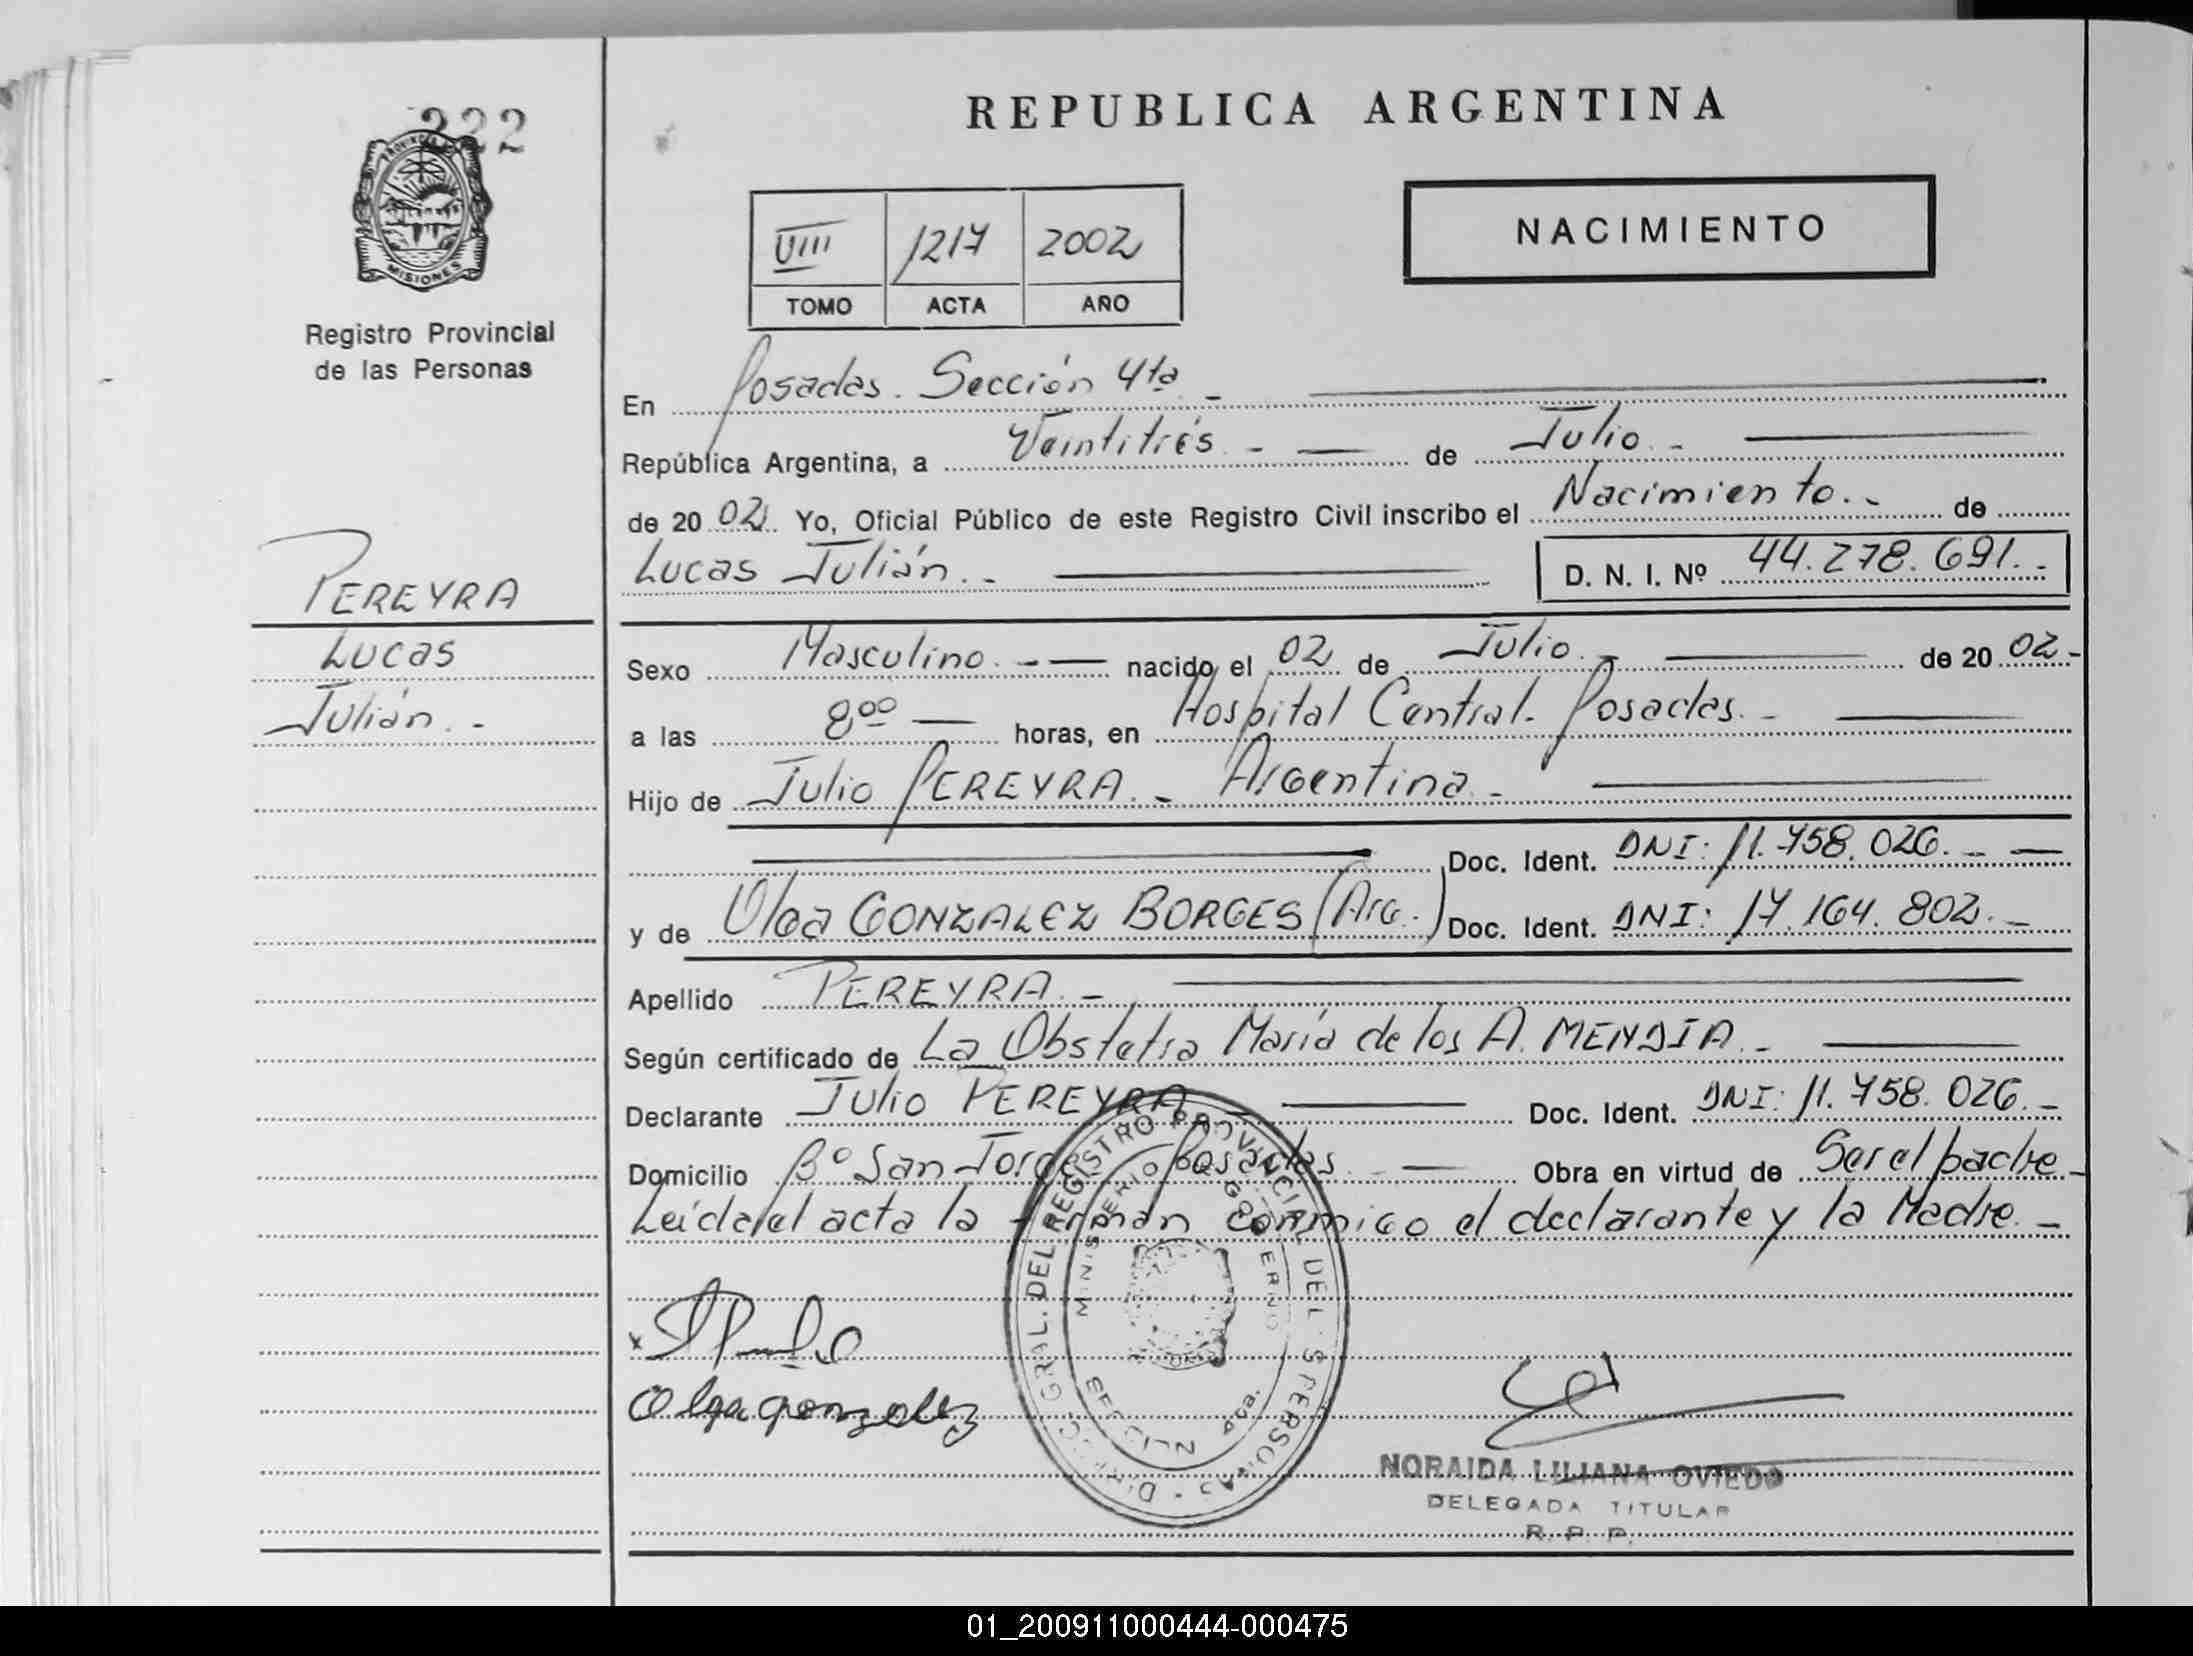 222
PROVINCIA DE
MISIONES
Registro Provincial
de las Personas
PEREYRA
Lucas
Julián.-
REPUBLICA ARGENTINA
NACIMIENTO
VIII 1217 2002
TOMO ACTA AÑO
En Posadas. Sección 4ta.-
República Argentina, a Veintitrés.- de Julio.-
de 20 02 Yo, Oficial Público de este Registro Civil inscribo el Nacimiento.- de
Lucas Julián.- D. N. I. Nº 44.278.691.-
Sexo Masculino.- nacido el 02 de Julio.- de 20 02.-
a las 8:00 horas, en Hospital Central. Posadas.-
Hijo de Julio PEREYRA.- Argentina.-
Doc. Ident. DNI: 11.758.026.-
y de Olga GONZALEZ BORGES (Arg.) Doc. Ident. DNI: 17.164.802.-
Apellido PEREYRA.-
Según certificado de La Obstetra María de los A. MENDIA.-
Declarante Julio PEREYRA.- Doc. Ident. DNI: 11.758.026.-
Domicilio Bº San Jorge Posadas.- Obra en virtud de Ser el padre.-
Leída el acta la firman conmigo el declarante y la Madre.-
Olga gonzalez
DIRECC. GRAL. DEL REGISTRO PROVINCIAL DE LAS PERSONAS
MINISTERIO DE GOBIERNO
SECCION 4ta.
NORAIDA LILIANA OVIEDO
DELEGADA TITULAR
R. P. P.
01_200911000444-000475